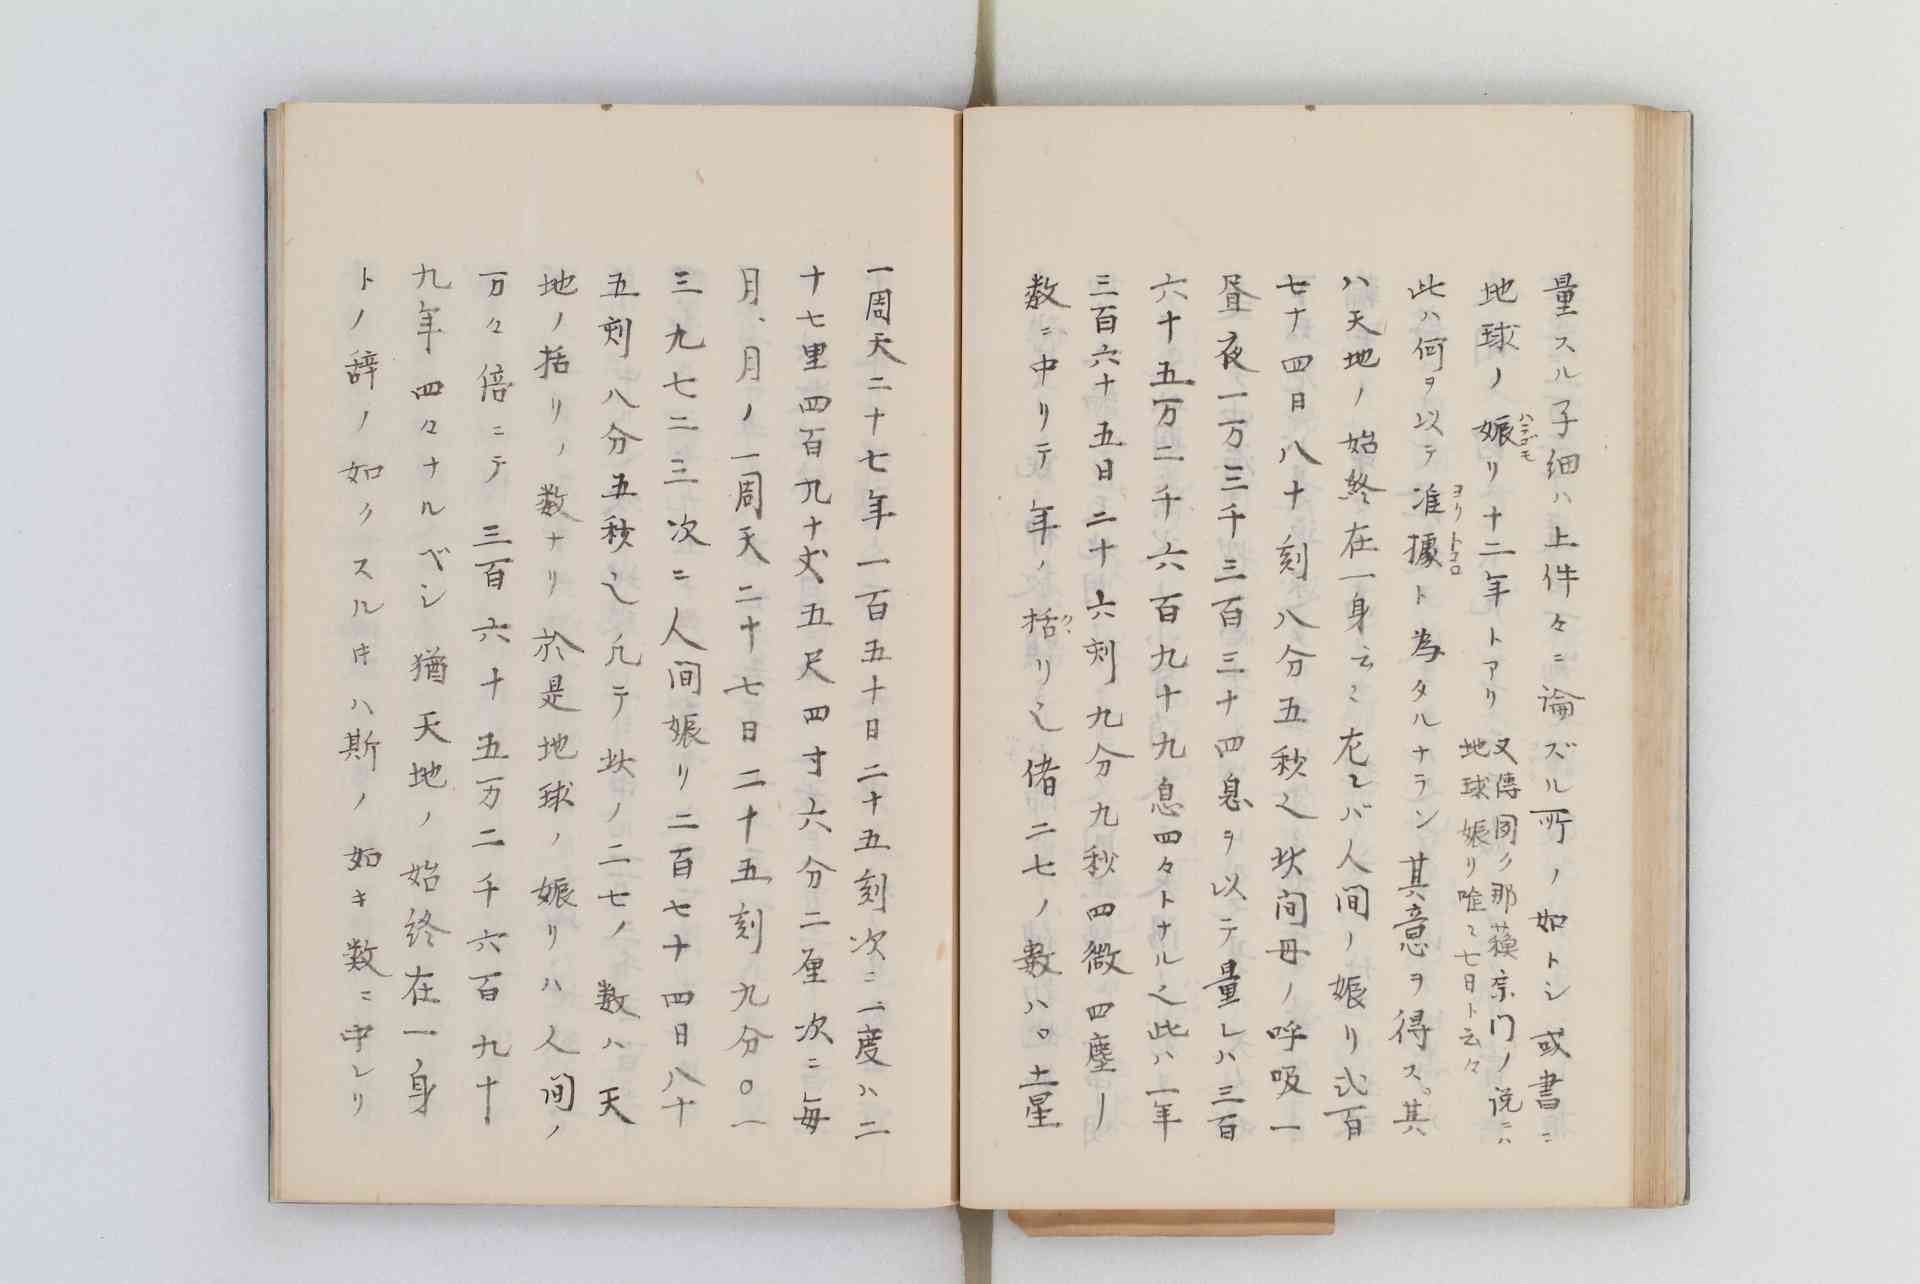 量スル子細ハ上件々ニ論ズル所ノ如トシ或書ニ
地球ノ娠リ十二年トアリ
ハラゴモ
又傳聞ク那蘓宗門ノ説ニハ
地球娠リ唯ミ七日ト云々
此ハ何ヲ以テ准據ト為タルナラン其意ヲ得ス。其
ヨリトコロ
ハ天地ノ始終在一身云ミ左レバ人間ノ娠リ弐百
七十四日八十刻八分五秒之此間母ノ呼吸一
昼夜一万三千三百三十四息ヲ以テ量レハ三百
六十五万二千六百九十九息四々トナル之此ハ一年
三百六十五日二十六刻九分九秒四微四塵ノ
数ニ中リテ年ノ括リ之偖二七ノ数ハ○土星
クヽ
一周天二十七年一百五十日二十五刻次ニ一度ハ二
十七里四百九十丈五尺四寸六分二厘次ニ毎
月、月ノ一周天二十七日二十五刻九分○一
三九七二三次ニ人間娠リ二百七十四日八十
五刻八分五秒之凡テ此ノ二七ノ数ハ天
地ノ括リノ数ナリ於是地球ノ娠リハ人間ノ
万々倍ニテ三百六十五万二千六百九十
九年四々ナルベシ猶天地ノ始終在一身
トノ辞ノ如クスルキハ斯ノ如キ数ニ中レリ